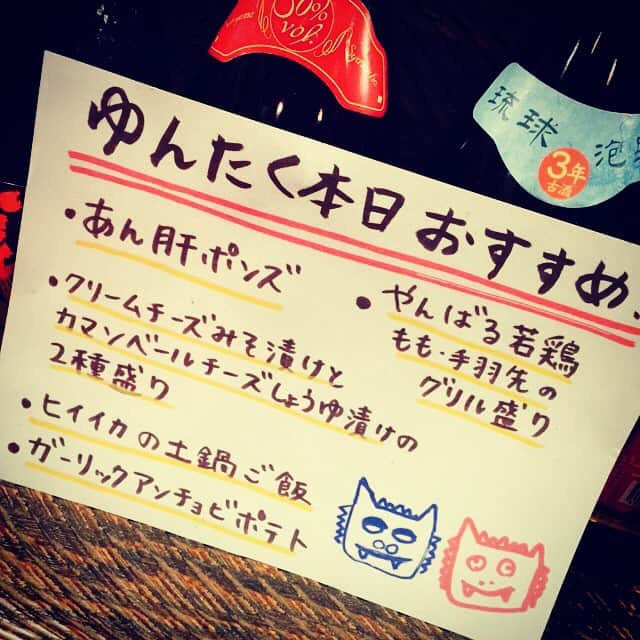 30%
vol.
琉球 泡
3年
古酒
ゆんたく本日おすすめ.
・あん肝ポンズ
・クリームチーズみそ漬けと
カマンベールチーズしょうゆ漬けの
2種盛り
・ヒイイカの土鍋ご飯
・ガーリックアンチョビポテト
・やんばる若鶏
もも・手羽先の
グリル盛り